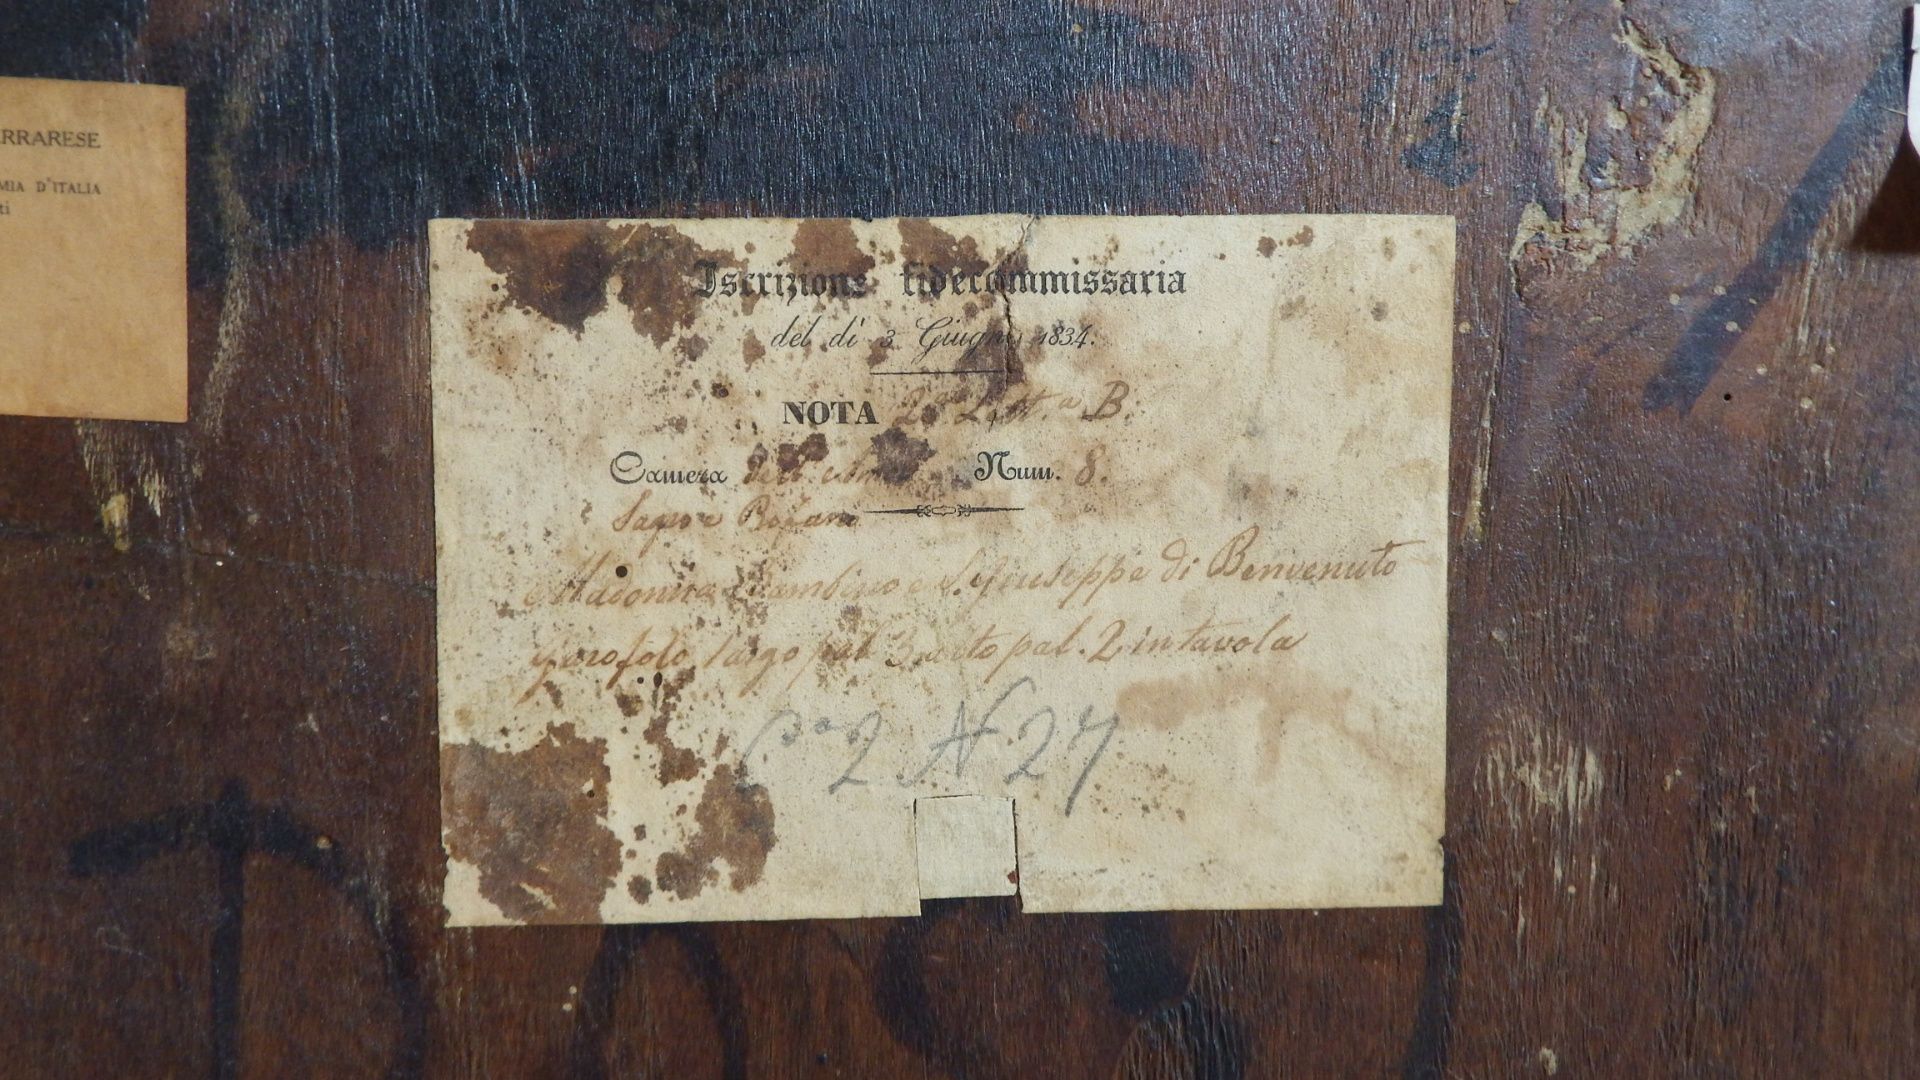 RRARESE
MIA D'ITALIA
ti
Iscrizione fidecommissaria
del dì 3 Giugno 1834.
NOTA 2.a Lett.a B.
Camera Num. 8.
Madonna Bambino e S. Giuseppe di Benvenuto
Garofolo largo pal 3 alto pal. 2 in tavola
2 N 27